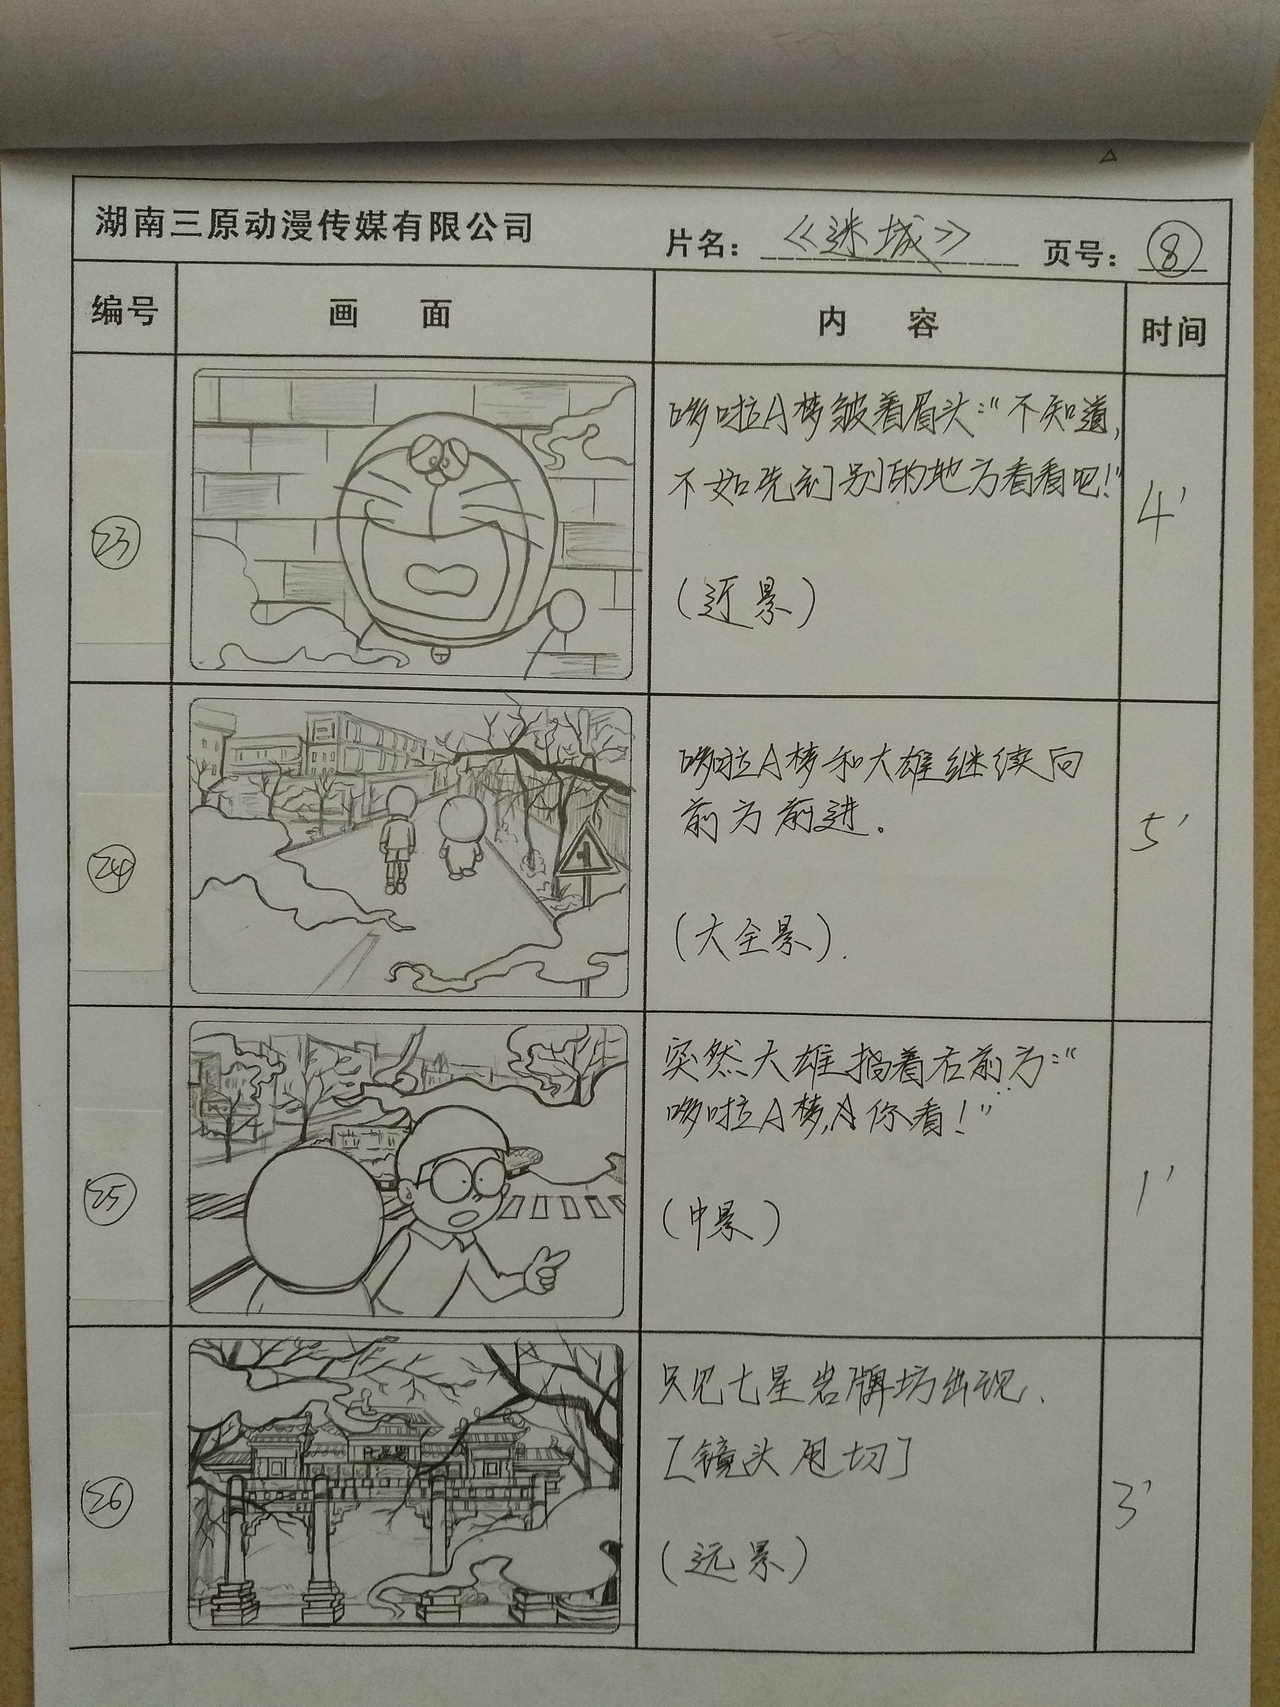 湖南三原动漫传媒有限公司
片名：《迷城》 页号：⑧
编号 画面 内容 时间
㉓
哆啦A梦皱着眉头："不知道，
不如先到别的地方看看吧！"
（近景）
4'
㉔
哆啦A梦和大雄继续向
前方前进。
（大全景）.
5'
㉕
突然大雄指着右前方："
哆啦A梦，你看！"
（中景）
1'
㉖
七星岩
只见七星岩牌坊出现.
[镜头甩切]
（远景）
3'